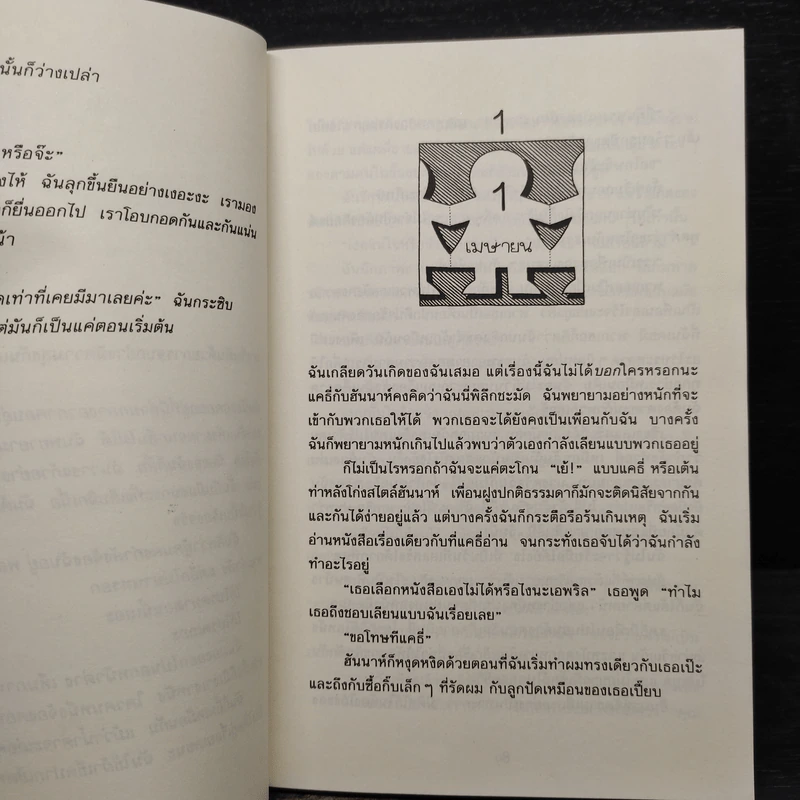 นั้นก็ว่างเปล่า
หรือจ๊ะ”
งไห้ ฉันลุกขึ้นยืนอย่างเงอะงะ เรามอง
งก็ยื่นออกไป เราโอบกอดกันและกันแน่น
น้า
ดเท่าที่เคยมีมาเลยค่ะ” ฉันกระซิบ
ต่มันก็เป็นแค่ตอนเริ่มต้น
1
1
เมษายน
ฉันเกลียดวันเกิดของฉันเสมอ แต่เรื่องนี้ฉันไม่ได้บอกใครหรอกนะ
แคธี่กับฮันนาห์คงคิดว่าฉันนี่พิลึกชะมัด ฉันพยายามอย่างหนักที่จะ
เข้ากับพวกเธอให้ได้ พวกเธอจะได้ยังคงเป็นเพื่อนกับฉัน บางครั้ง
ฉันก็พยายามหนักเกินไปแล้วพบว่าตัวเองกำลังเลียนแบบพวกเธออยู่
ก็ไม่เป็นไรหรอกถ้าฉันจะแค่ตะโกน “เย้!” แบบแคธี่ หรือเต้น
ท่าหลังโก่งสไตล์ฮันนาห์ เพื่อนฝูงปกติธรรมดาก็มักจะติดนิสัยจากกัน
และกันได้ง่ายอยู่แล้ว แต่บางครั้งฉันก็กระตือรือร้นเกินเหตุ ฉันเริ่ม
อ่านหนังสือเรื่องเดียวกับที่แคธี่อ่าน จนกระทั่งเธอจับได้ว่าฉันกำลัง
ทำอะไรอยู่
“เธอเลือกหนังสือเองไม่ได้หรือไงนะเอพริล” เธอพูด “ทำไม
เธอถึงชอบเลียนแบบฉันเรื่อยเลย”
“ขอโทษทีแคธี่”
ฮันนาห์ก็หงุดหงิดด้วยตอนที่ฉันเริ่มทำผมทรงเดียวกับเธอเป๊ะ
และถึงกับซื้อกิ๊บเล็กๆ ที่รัดผม กับลูกปัดเหมือนของเธอเปี๊ยบ